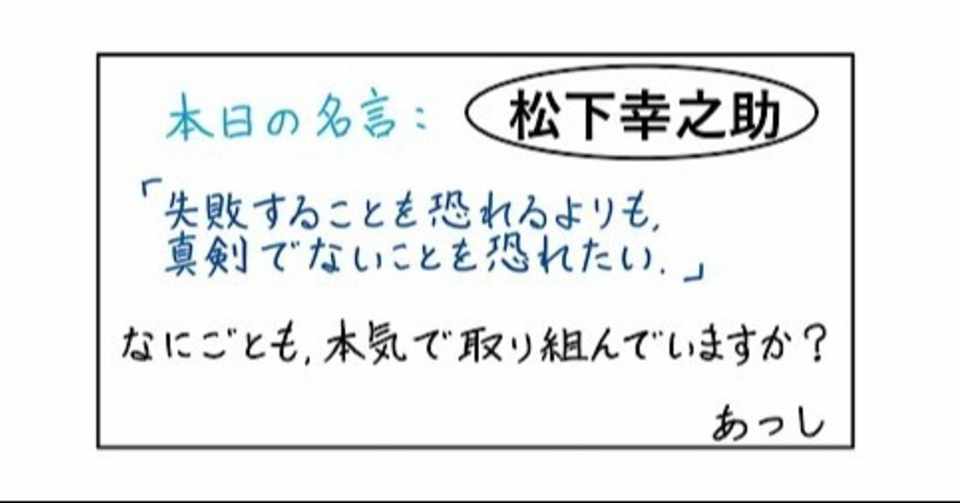 本日の名言: 松下幸之助
「失敗することを恐れるよりも,
真剣でないことを恐れたい.」
なにごとも,本気で取り組んでいますか？
あっし